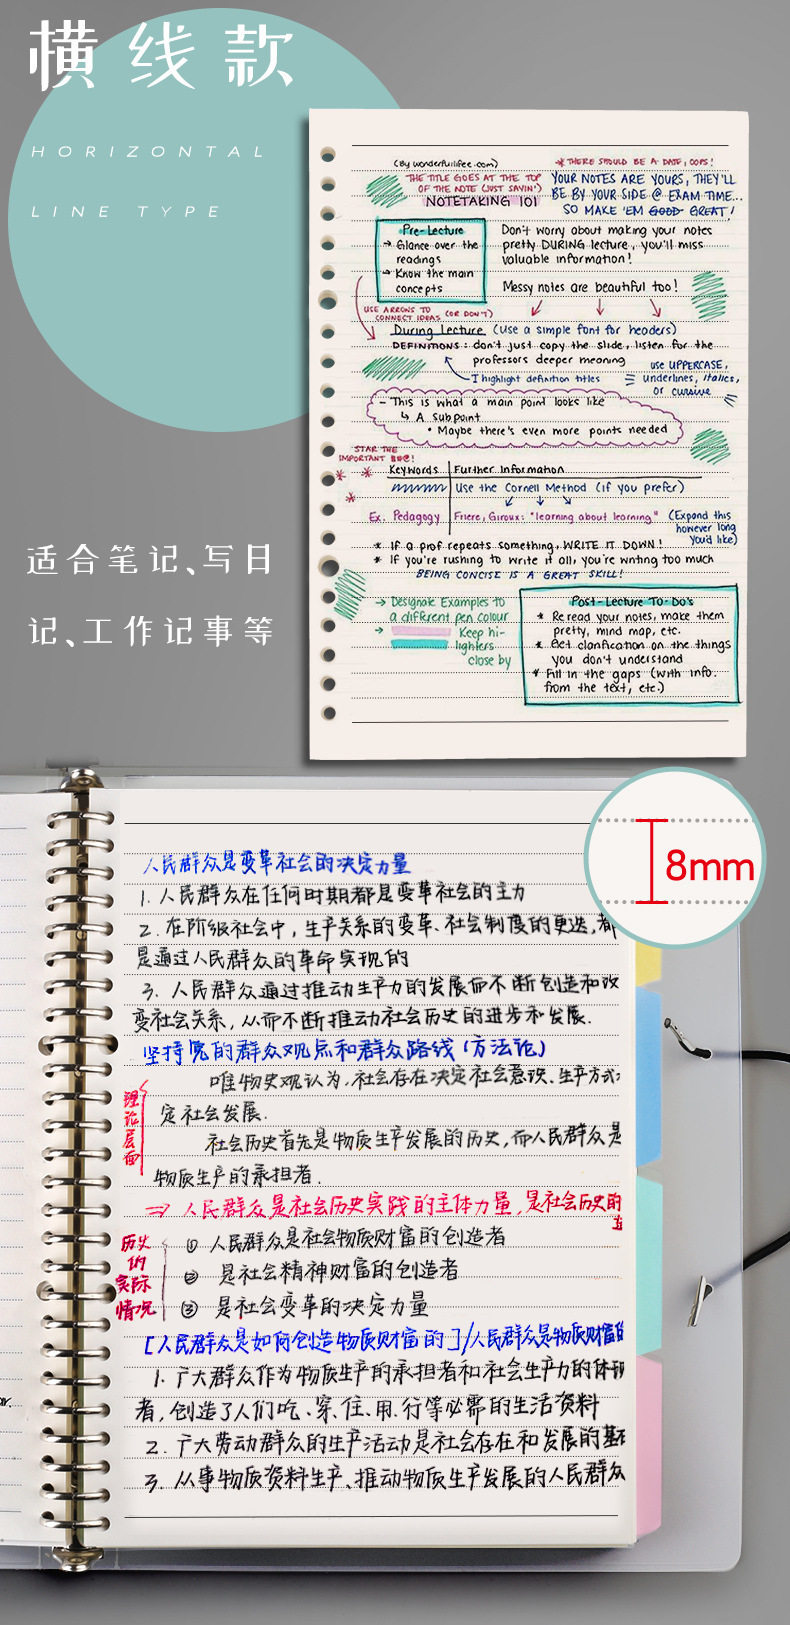 横线款
HORIZONTAL
LINE TYPE
适合笔记、写日
记、工作记事等
(By wonderfullifee.com)
* THERE SHOULD BE A DATE, OOPS!
THE TITLE GOES AT THE TOP
OF THE NOTE (JUST SAYIN')
NOTETAKING 101
YOUR NOTES ARE YOURS, THEY'LL
BE BY YOUR SIDE @ EXAM TIME...
SO MAKE 'EM GOOD GREAT!
Pre-Lecture
→ Glance over the
readings
→ Know the main
concepts
Don't worry about making your notes
pretty DURING lecture, you'll miss
valuable information!
Messy notes are beautiful too!
USE ARROWS TO
CONNECT IDEAS (OR DON'T)
During Lecture (Use a simple font for headers)
DEFINITIONS: don't just copy the slide, listen for the
professors deeper meaning
I highlight definition titles
use UPPERCASE,
underlines, italics,
or cursive
- This is what a main point looks like
↳ A subpoint
• Maybe there's even more points needed
STAR THE
IMPORTANT BH@!
Keywords
Further Information
Use the Cornell Method (if you prefer)
Ex. Pedagogy
Friere, Giroux: "learning about learning"
(Expand this
however long
you'd like)
* If a prof repeats something, WRITE IT DOWN!
* If you're rushing to write it all, you're writing too much
BEING CONCISE IS A GREAT SKILL!
→ Designate Examples to
a different pen colour
→ Keep hi-
lighters
close by
Post-Lecture To-Do's
* Re read your notes, make them
pretty, mind map, etc.
* Get clarification on the things
you don't understand
* Fill in the gaps (with info.
from the text, etc.)
8mm
人民群众是变革社会的决定力量
1. 人民群众在任何时期都是变革社会的主力
2. 在阶级社会中, 生产关系的变革、社会制度的更迭, 都
是通过人民群众的革命实现的
3. 人民群众通过推动生产力的发展而不断创造和改
变社会关系, 从而不断推动社会历史的进步和发展.
坚持党的群众观点和群众路线 (方法论)
理论层面
唯物史观认为, 社会存在决定社会意识. 生产方式
定社会发展.
社会历史首先是物质生产发展的历史, 而人民群众是
物质生产的承担者.
⇒ 人民群众是社会历史实践的主体力量, 是社会历史的
历史
的
实际
情况
① 人民群众是社会物质财富的创造者
② 是社会精神财富的创造者
③ 是社会变革的决定力量
[人民群众是如何创造物质财富的]/人民群众是物质财富的
1. 广大群众作为物质生产的承担者和社会生产力的体现
者, 创造了人们吃、穿、住、用、行等必需的生活资料
2. 广大劳动群众的生产活动是社会存在和发展的基
3. 从事物质资料生产、推动物质生产发展的人民群众